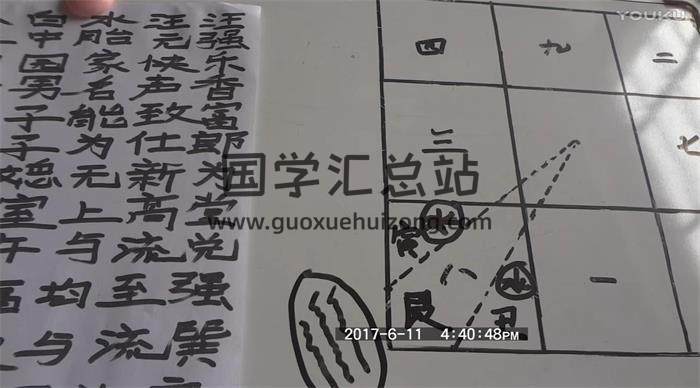 汪强乐香富郎为堂兑强巽
汪元快声致仕新高流至流
水胎家名能为无上与均与
中国男子
四 九 二
三 七
寅 水
八 水 一
艮 丑
国学汇总站
www.guoxuehuizong.com
YOUKU
2017-6-11 4:40:48PM